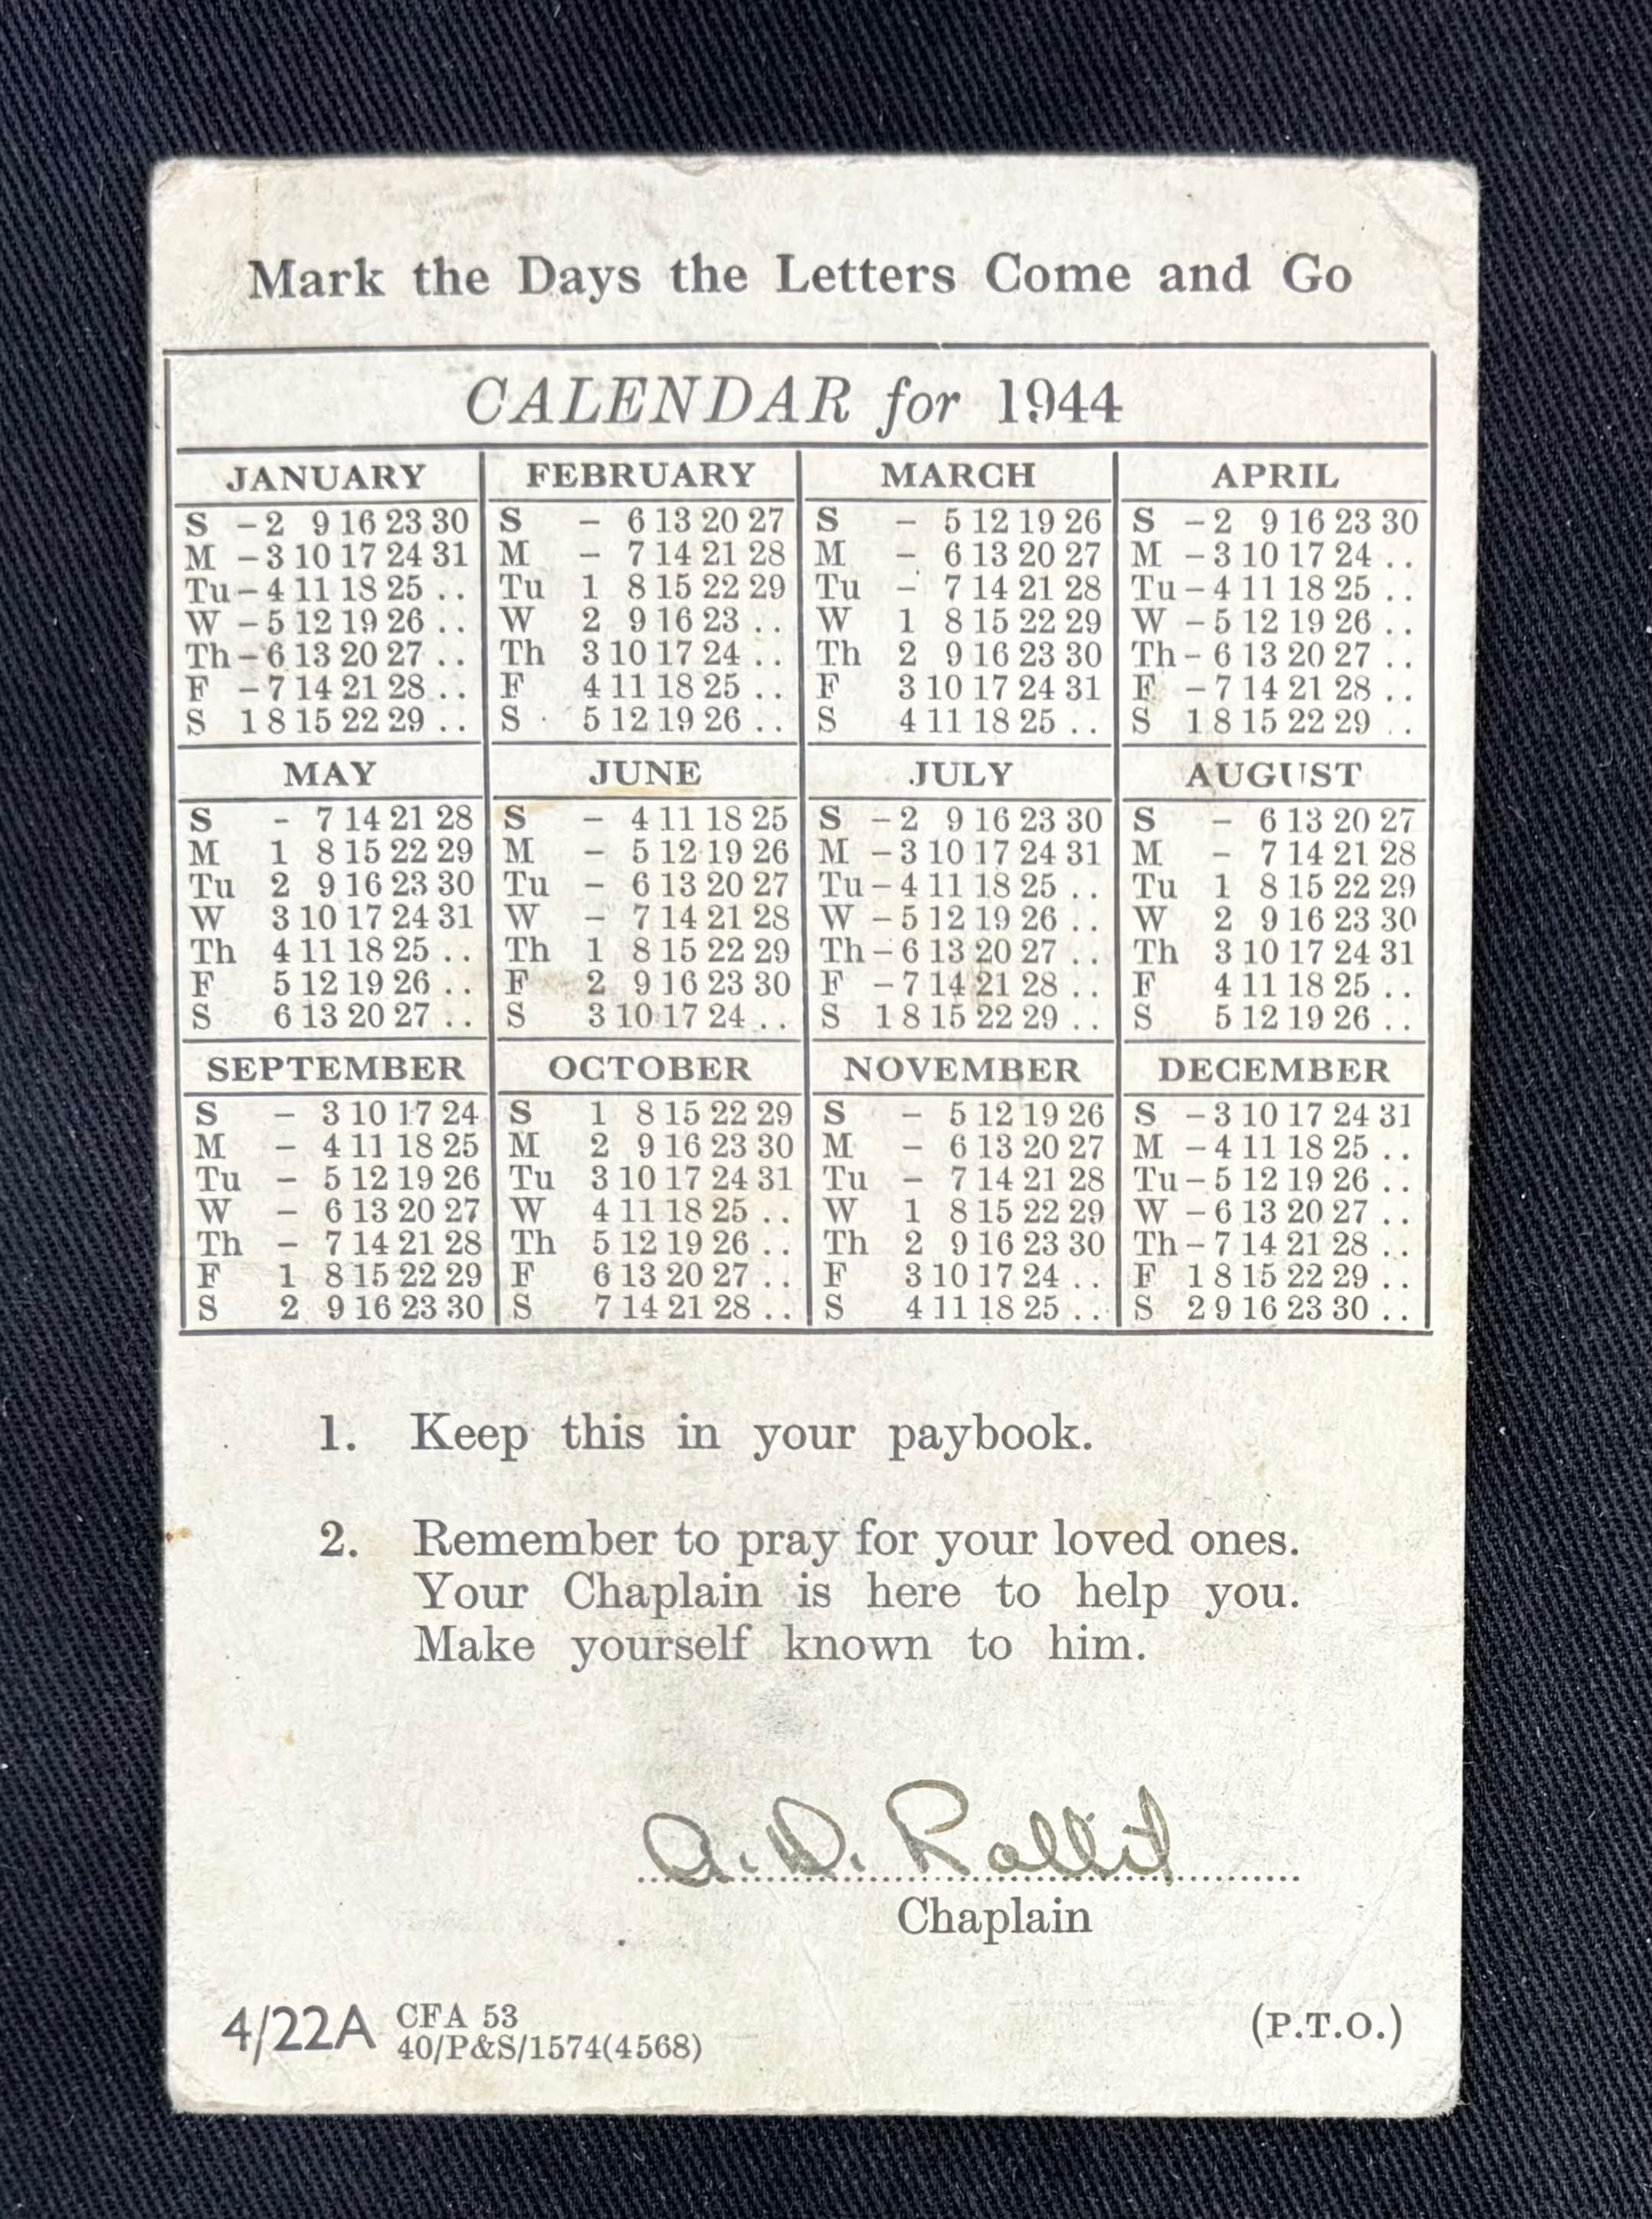 Mark the Days the Letters Come and Go
CALENDAR for 1944
JANUARY
S - 2 9 16 23 30
M - 3 10 17 24 31
Tu - 4 11 18 25 ..
W - 5 12 19 26 ..
Th - 6 13 20 27 ..
F - 7 14 21 28 ..
S 1 8 15 22 29 ..
FEBRUARY
S - 6 13 20 27
M - 7 14 21 28
Tu 1 8 15 22 29
W 2 9 16 23 ..
Th 3 10 17 24 ..
F 4 11 18 25 ..
S 5 12 19 26 ..
MARCH
S - 5 12 19 26
M - 6 13 20 27
Tu - 7 14 21 28
W 1 8 15 22 29
Th 2 9 16 23 30
F 3 10 17 24 31
S 4 11 18 25 ..
APRIL
S - 2 9 16 23 30
M - 3 10 17 24 ..
Tu - 4 11 18 25 ..
W - 5 12 19 26 ..
Th - 6 13 20 27 ..
F - 7 14 21 28 ..
S 1 8 15 22 29 ..
MAY
S - 7 14 21 28
M 1 8 15 22 29
Tu 2 9 16 23 30
W 3 10 17 24 31
Th 4 11 18 25 ..
F 5 12 19 26 ..
S 6 13 20 27 ..
JUNE
S - 4 11 18 25
M - 5 12 19 26
Tu - 6 13 20 27
W - 7 14 21 28
Th 1 8 15 22 29
F 2 9 16 23 30
S 3 10 17 24 ..
JULY
S - 2 9 16 23 30
M - 3 10 17 24 31
Tu - 4 11 18 25 ..
W - 5 12 19 26 ..
Th - 6 13 20 27 ..
F - 7 14 21 28 ..
S 1 8 15 22 29 ..
AUGUST
S - 6 13 20 27
M - 7 14 21 28
Tu 1 8 15 22 29
W 2 9 16 23 30
Th 3 10 17 24 31
F 4 11 18 25 ..
S 5 12 19 26 ..
SEPTEMBER
S - 3 10 17 24
M - 4 11 18 25
Tu - 5 12 19 26
W - 6 13 20 27
Th - 7 14 21 28
F 1 8 15 22 29
S 2 9 16 23 30
OCTOBER
S 1 8 15 22 29
M 2 9 16 23 30
Tu 3 10 17 24 31
W 4 11 18 25 ..
Th 5 12 19 26 ..
F 6 13 20 27 ..
S 7 14 21 28 ..
NOVEMBER
S - 5 12 19 26
M - 6 13 20 27
Tu - 7 14 21 28
W 1 8 15 22 29
Th 2 9 16 23 30
F 3 10 17 24 ..
S 4 11 18 25 ..
DECEMBER
S - 3 10 17 24 31
M - 4 11 18 25 ..
Tu - 5 12 19 26 ..
W - 6 13 20 27 ..
Th - 7 14 21 28 ..
F 1 8 15 22 29 ..
S 2 9 16 23 30 ..
1. Keep this in your paybook.
2. Remember to pray for your loved ones.
Your Chaplain is here to help you.
Make yourself known to him.
A. D.
Chaplain
4/22A CFA 53
40/P&S/1574(4568)
(P.T.O.)